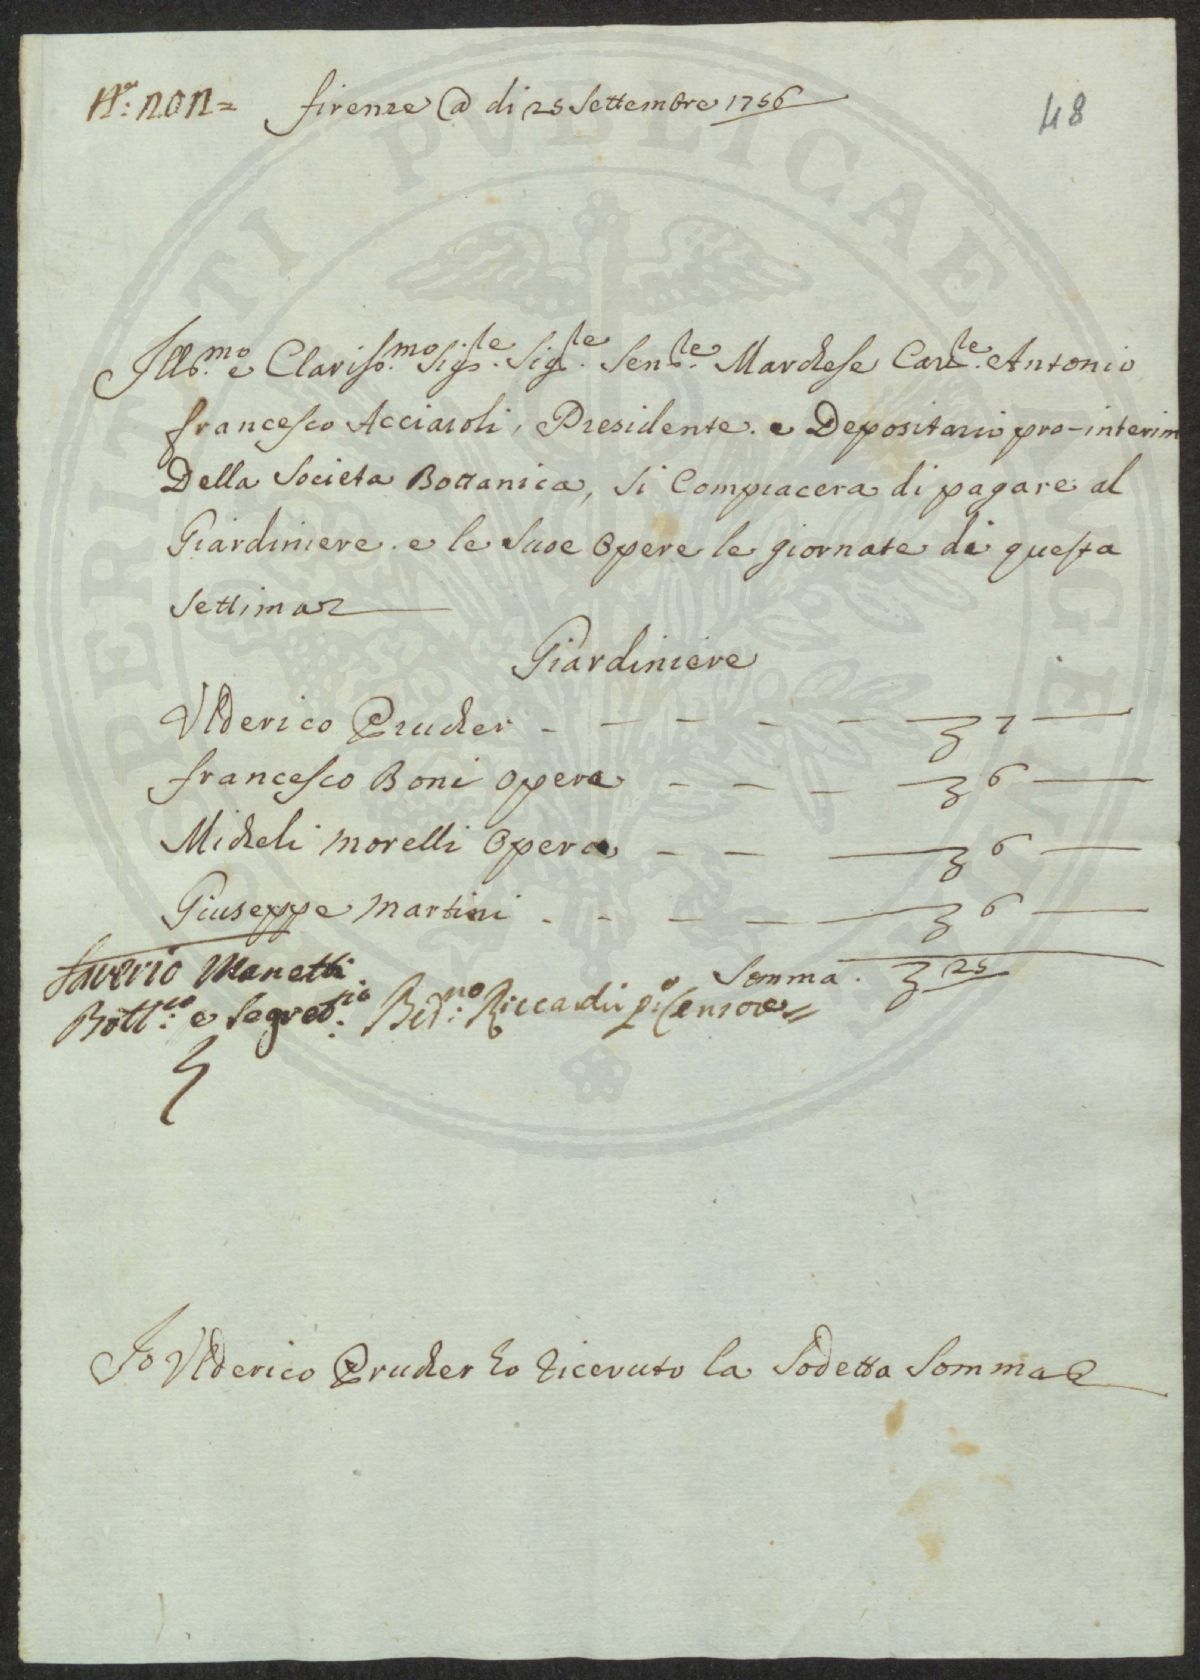 N.º non= firenze @ di 25 Settembre 1756
48
Ill.mo e Clariss.mo Sig.le Sig.le Sen.le Marchese Cav.le Antonio
francesco Acciaioli, Presidente e Depositario pro-interim
Della Societa Bottanica, Si Compiacera di pagare al
Giardiniere e le Sue Opere le giornate di questa
Settima
Giardiniere
Ulderico Prucher - - - - - 7 -
francesco Boni Opera - - - - 6 -
Micheli Morelli Opera - - - 6 -
Giuseppe Martini - - - - 6 -
Somma. 25
Saverio Manetti
Bott.co e Segret.rio Ber.no Riccardi p.o Censore
Io Ulderico Prucher ho ricevuto la Sodetta Somma